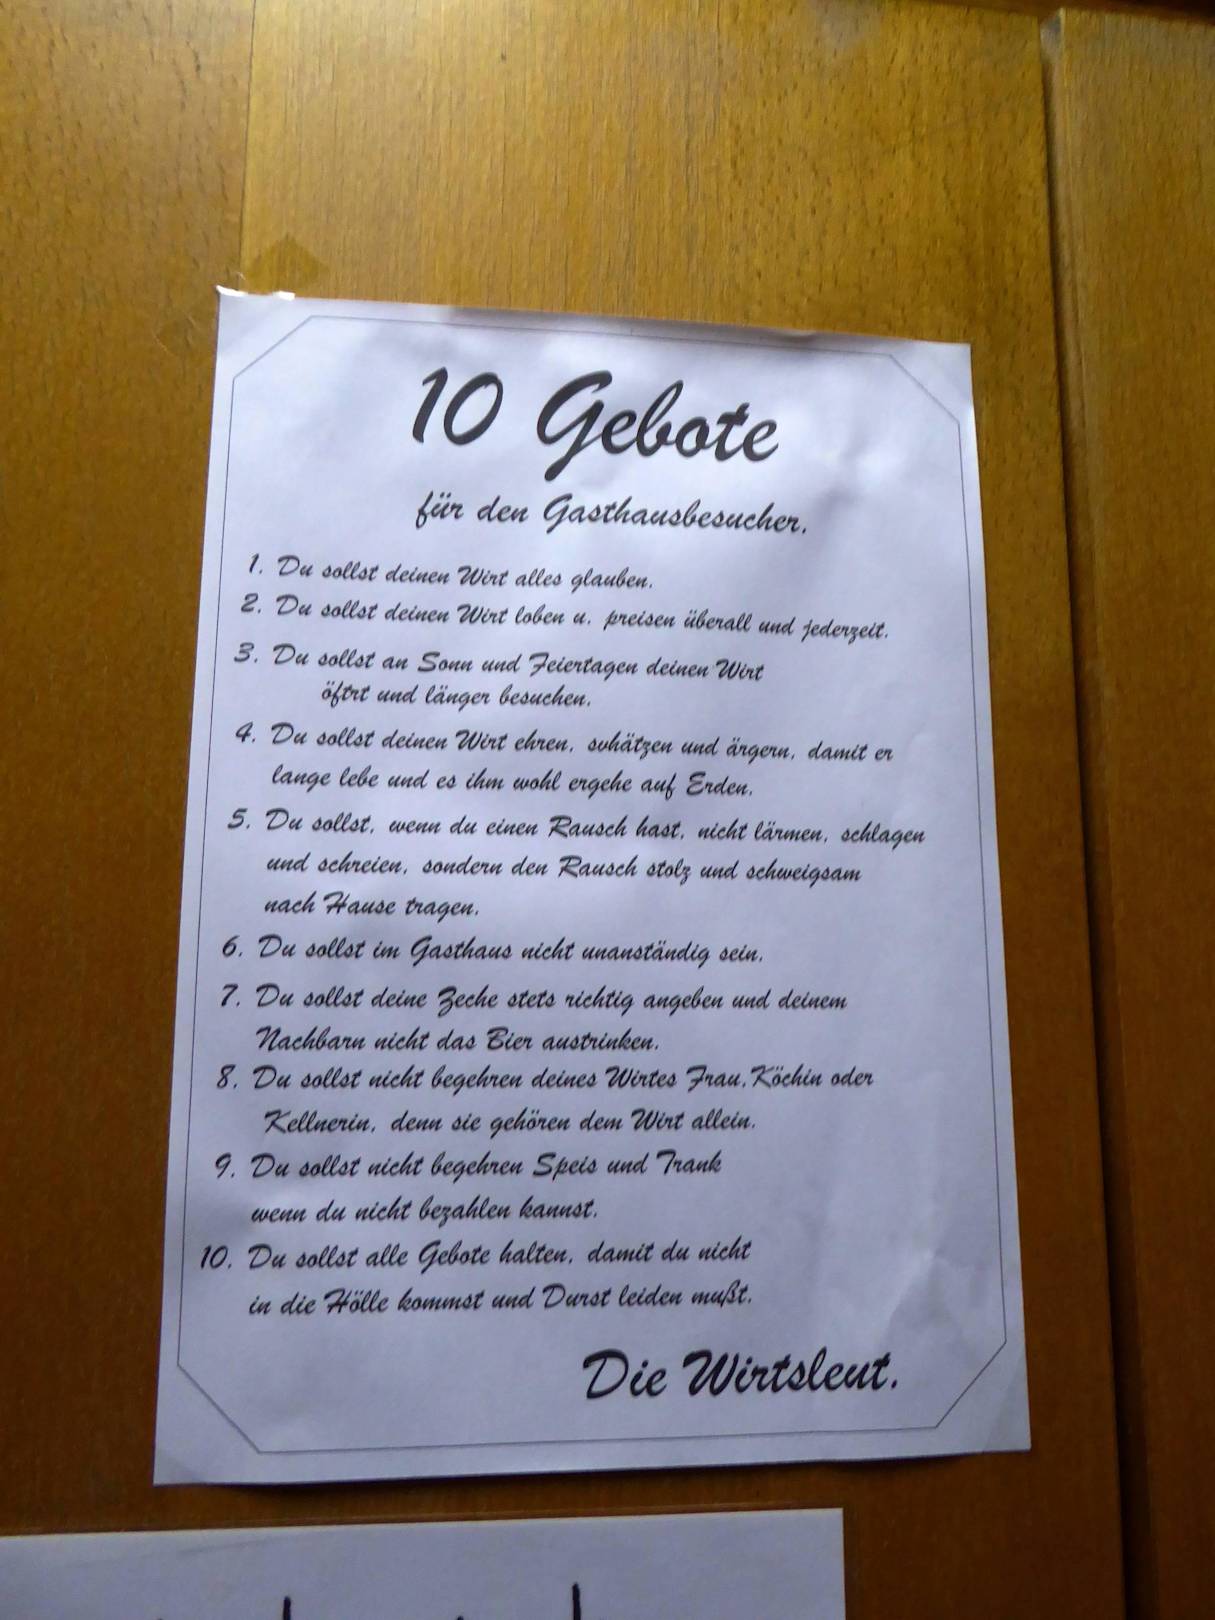 10 Gebote
für den Gasthausbesucher.
1. Du sollst deinen Wirt alles glauben.
2. Du sollst deinen Wirt loben u. preisen überall und jederzeit.
3. Du sollst an Sonn und Feiertagen deinen Wirt
öftrt und länger besuchen.
4. Du sollst deinen Wirt ehren, svhätzen und ärgern, damit er
lange lebe und es ihm wohl ergehe auf Erden.
5. Du sollst, wenn du einen Rausch hast, nicht lärmen, schlagen
und schreien, sondern den Rausch stolz und schweigsam
nach Hause tragen.
6. Du sollst im Gasthaus nicht unanständig sein.
7. Du sollst deine Zeche stets richtig angeben und deinem
Nachbarn nicht das Bier austrinken.
8. Du sollst nicht begehren deines Wirtes Frau, Köchin oder
Kellnerin, denn sie gehören dem Wirt allein.
9. Du sollst nicht begehren Speis und Trank
wenn du nicht bezahlen kannst.
10. Du sollst alle Gebote halten, damit du nicht
in die Hölle kommst und Durst leiden mußt.
Die Wirtsleut.